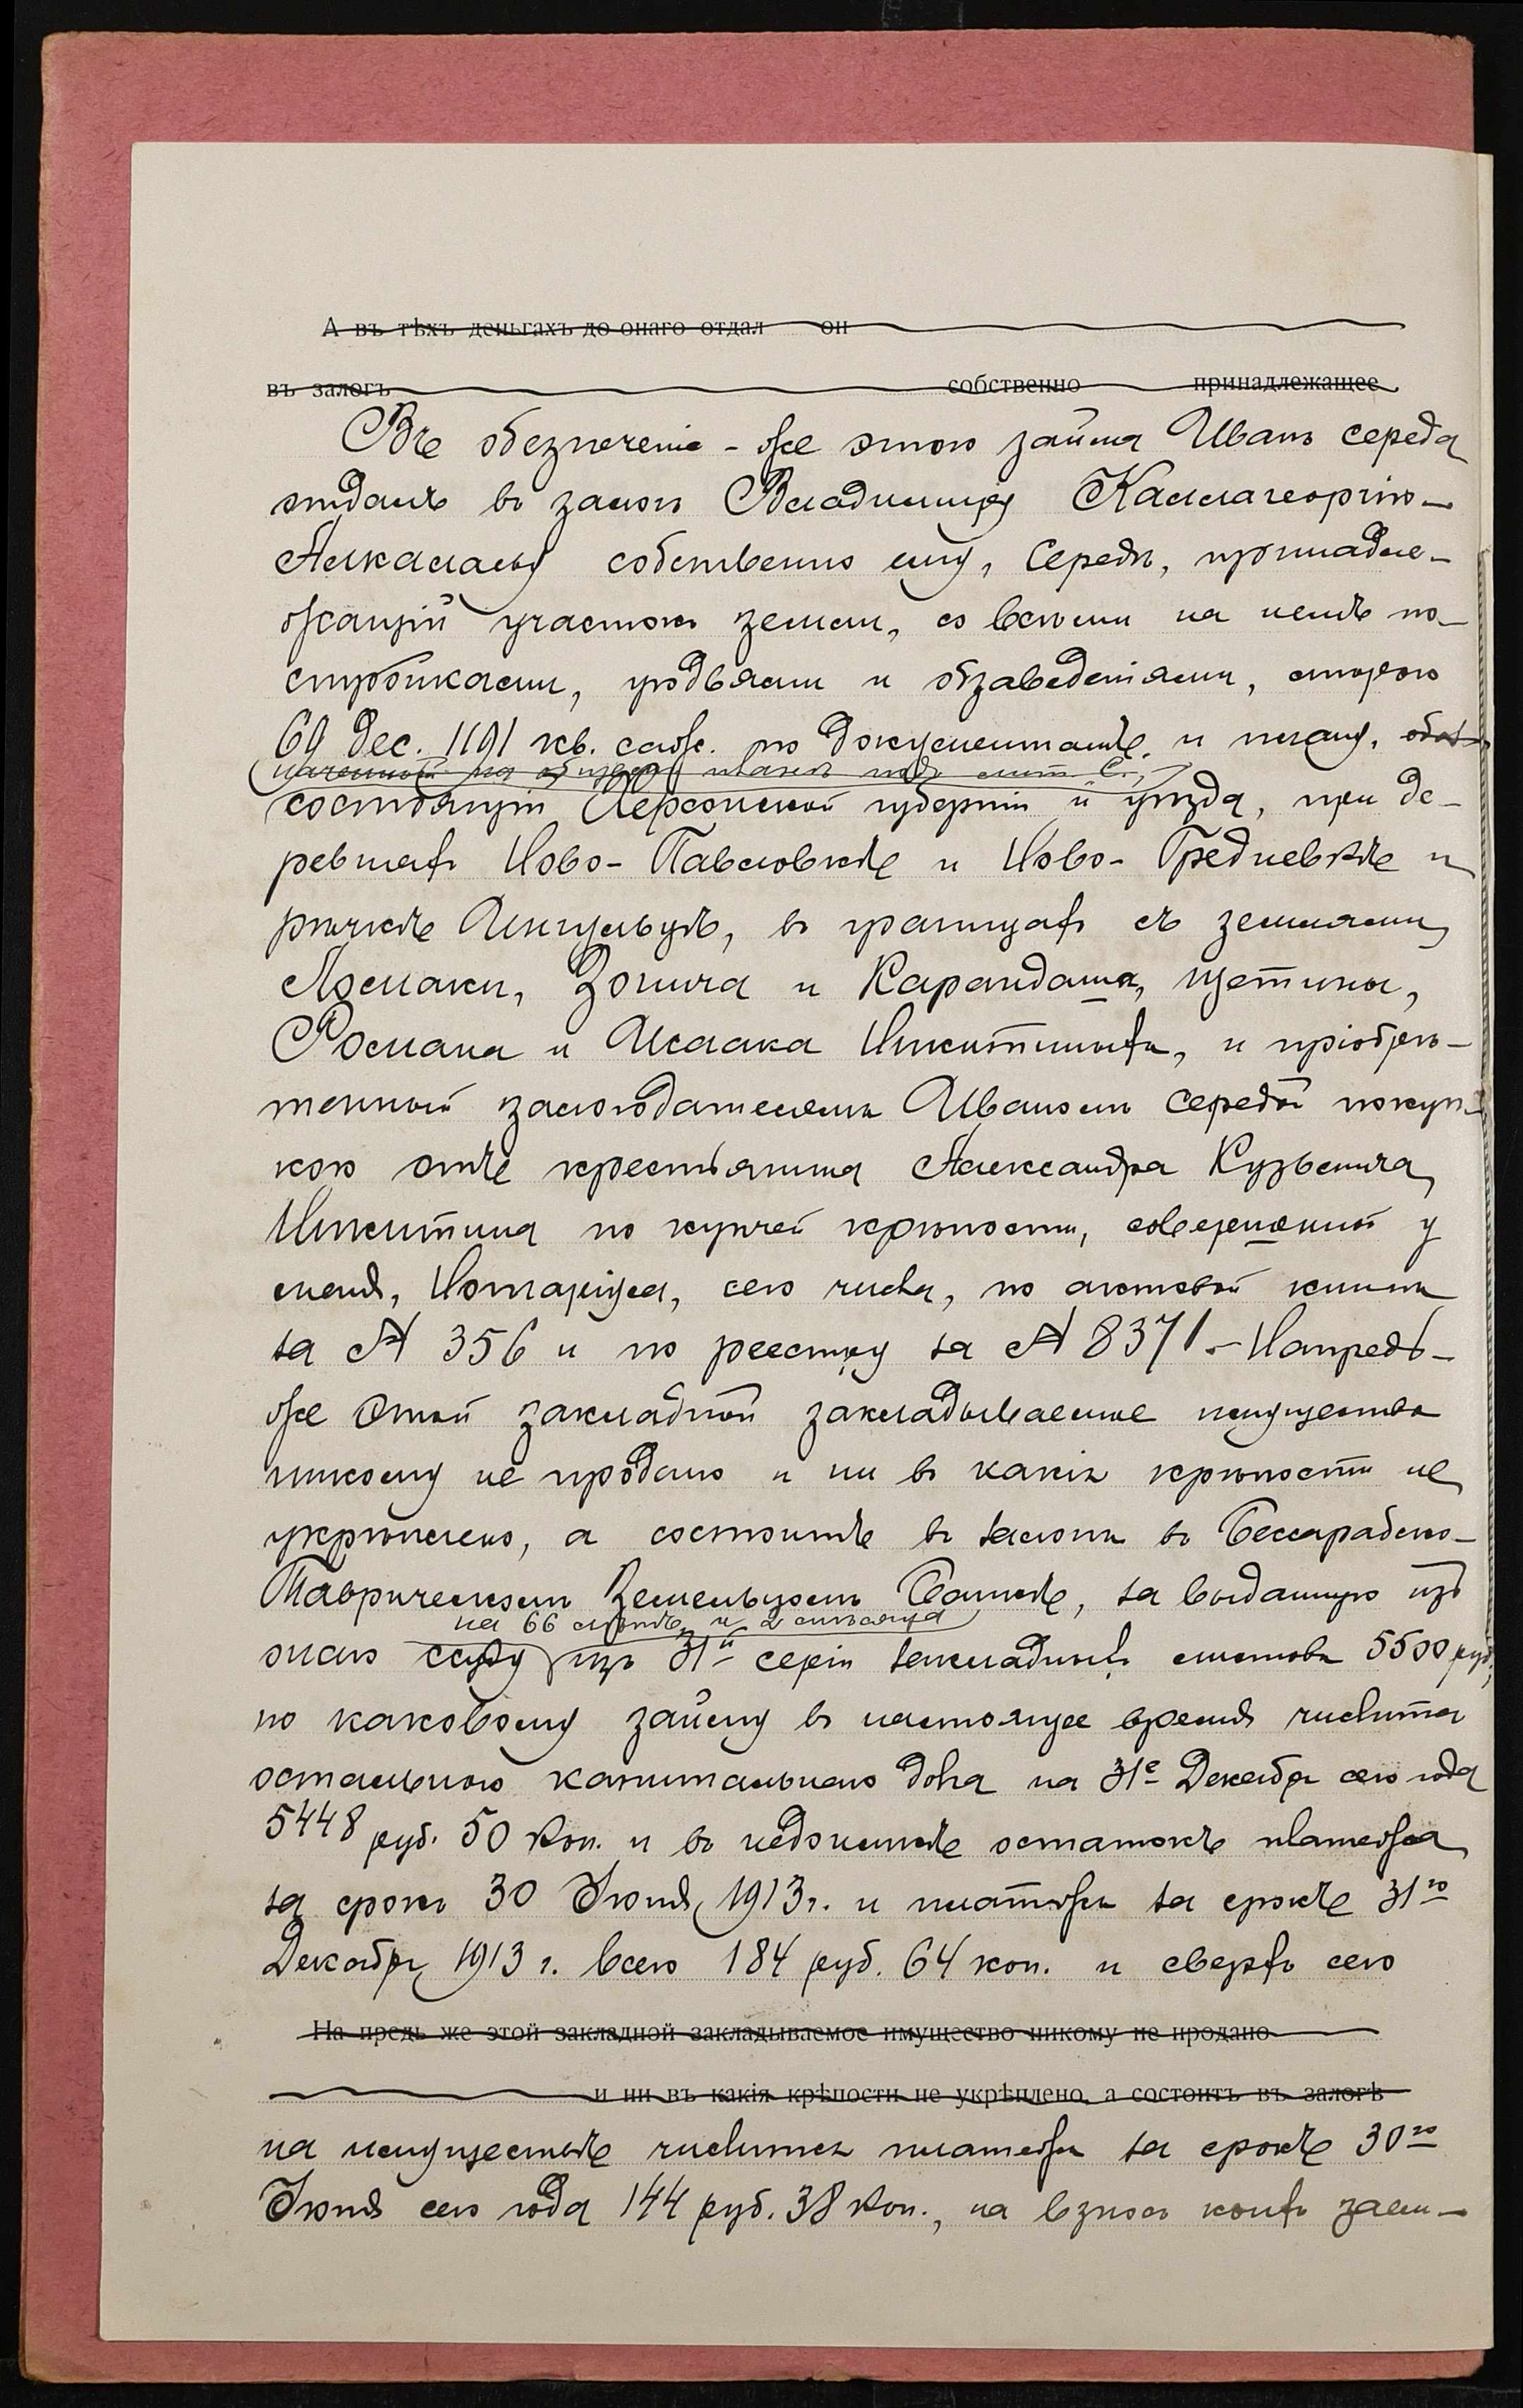 А въ тѣхъ деньгахъ до онаго отдал он
въ залогъ собственно принадлежащее
Въ обезпеченіе-же этого займа Иванъ Середа
отдалъ въ залогъ Владиміру Каллагеоргію-
Алкалаеву собственно ему, Середѣ, принадле-
жащій участокъ земли, со всѣми на немъ по-
стройками, угодьями и обзаведеніями, мѣрою
69 дес. 1191 кв. саж. по документамъ и плану, обоз-
наченной на общемъ планѣ подъ лит. С.,
состоящій Херсонской губерніи и уѣзда, при де-
ревняхъ Ново-Павловкѣ и Ново-Гредневкѣ и
рѣчкѣ Ингульцѣ, въ границахъ съ землями
Ломаки, Зонича и Карандаша, Щетины,
Романа и Исаака Никитиныхъ, и пріобрѣ-
тенный залогодателемъ Иваномъ Середой покуп-
кою отъ крестьянина Александра Кузьмича
Никитина по купчей крѣпости, совершенной у
меня, Нотаріуса, сего числа, по актовой книгѣ
за № 356 и по реестру за № 8371.- Напредь-
же этой закладной закладываемое имущество
никому не продано и ни въ какія крѣпости не
укрѣплено, а состоитъ въ залогѣ въ Бессарабско-
Таврическомъ Земельномъ Банкѣ, за выданную изъ
на 66 лѣтъ и 2 мѣсяца
онаго ссуду изъ 31й серіи закладныхъ листовъ 5500 руб.,
по каковому займу въ настоящее время числится
остального капитальнаго долга на 31е Декабря сего года
5448 руб. 50 коп. и въ недоимкѣ остатокъ платежа
за срокъ 30 Іюня 1913 г. и платежъ за срокъ 31го
Декабря 1913 г. всего 184 руб. 64 коп. и сверхъ сего
На предь же этой закладной закладываемое имущество никому не продано
и ни въ какія крѣпости не укрѣплено, а состоитъ въ залогѣ
на имуществѣ числится платежъ за срокъ 30го
Іюня сего года 144 руб. 38 коп., на взносъ коихъ заем-